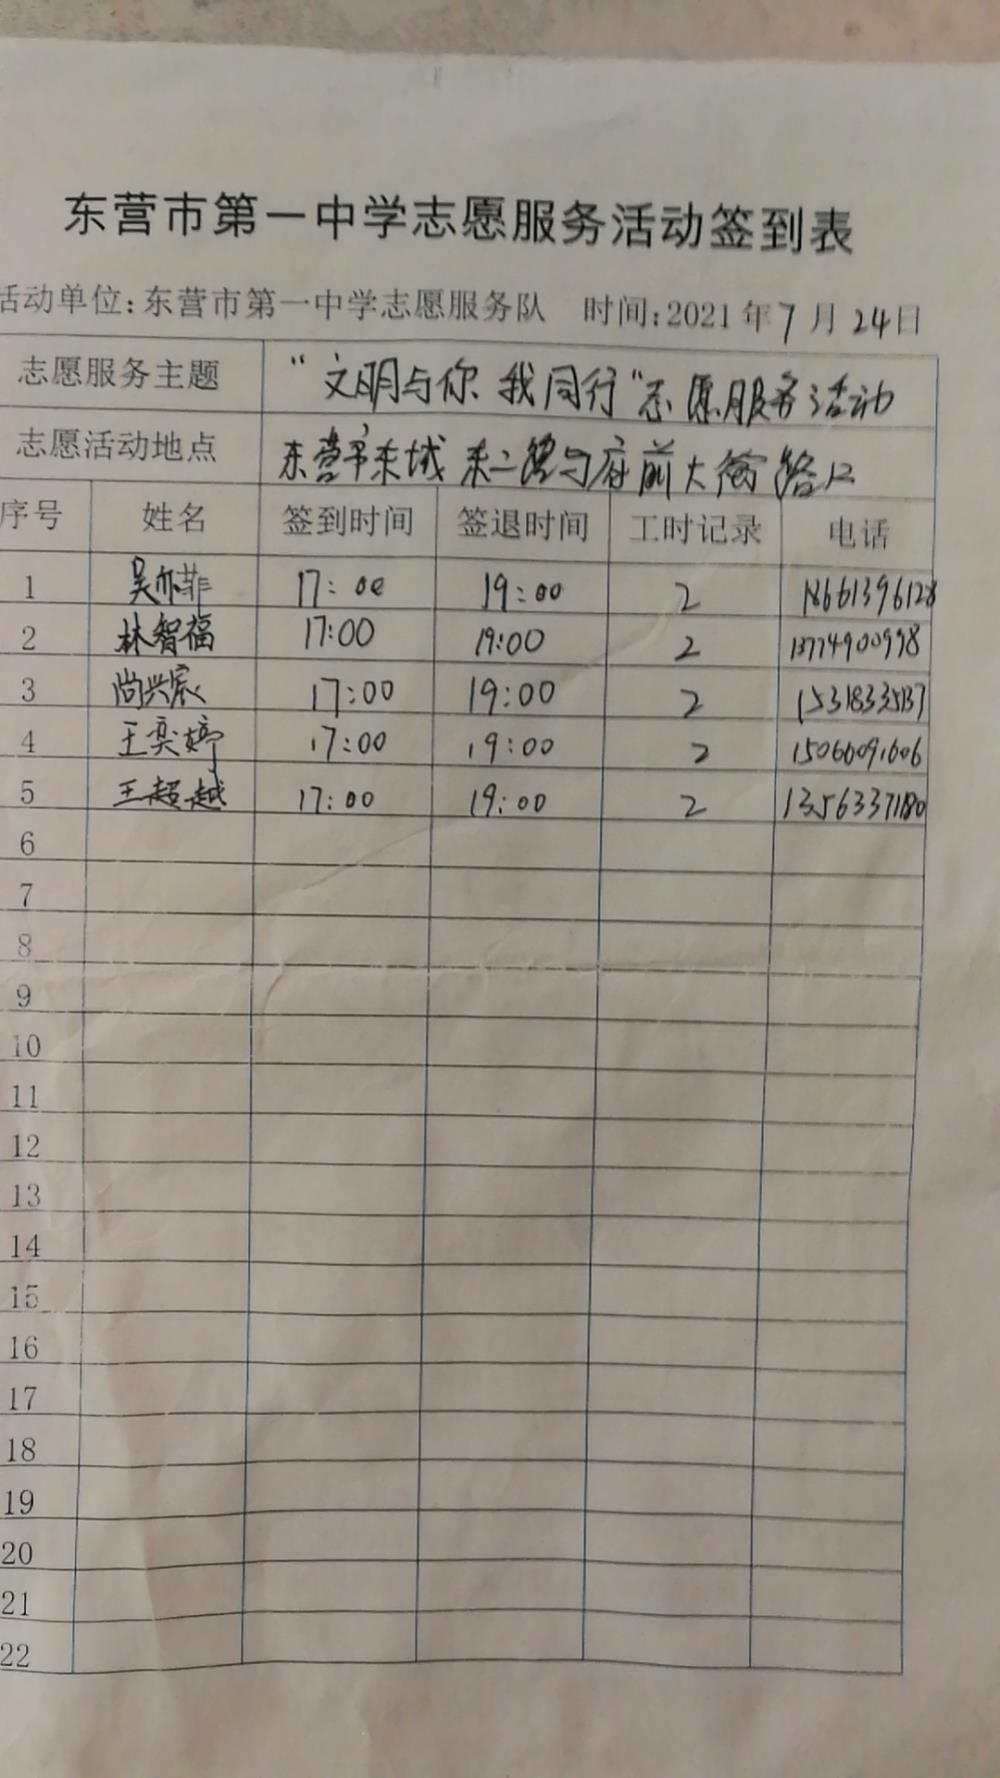 东营市第一中学志愿服务活动签到表
活动单位:东营市第一中学志愿服务队 时间:2021年7月24日
志愿服务主题 “文明与你我同行”志愿服务活动
志愿活动地点 东营市东城东二路与府前大街路口
序号 姓名 签到时间 签退时间 工时记录 电话
1 吴亦菲 17:00 19:00 2 18661396128
2 林智福 17:00 19:00 2 13774900998
3 尚兴宸 17:00 19:00 2 15318335137
4 王奕婷 17:00 19:00 2 15066091606
5 王超越 17:00 19:00 2 13563371180
6
7
8
9
10
11
12
13
14
15
16
17
18
19
20
21
22